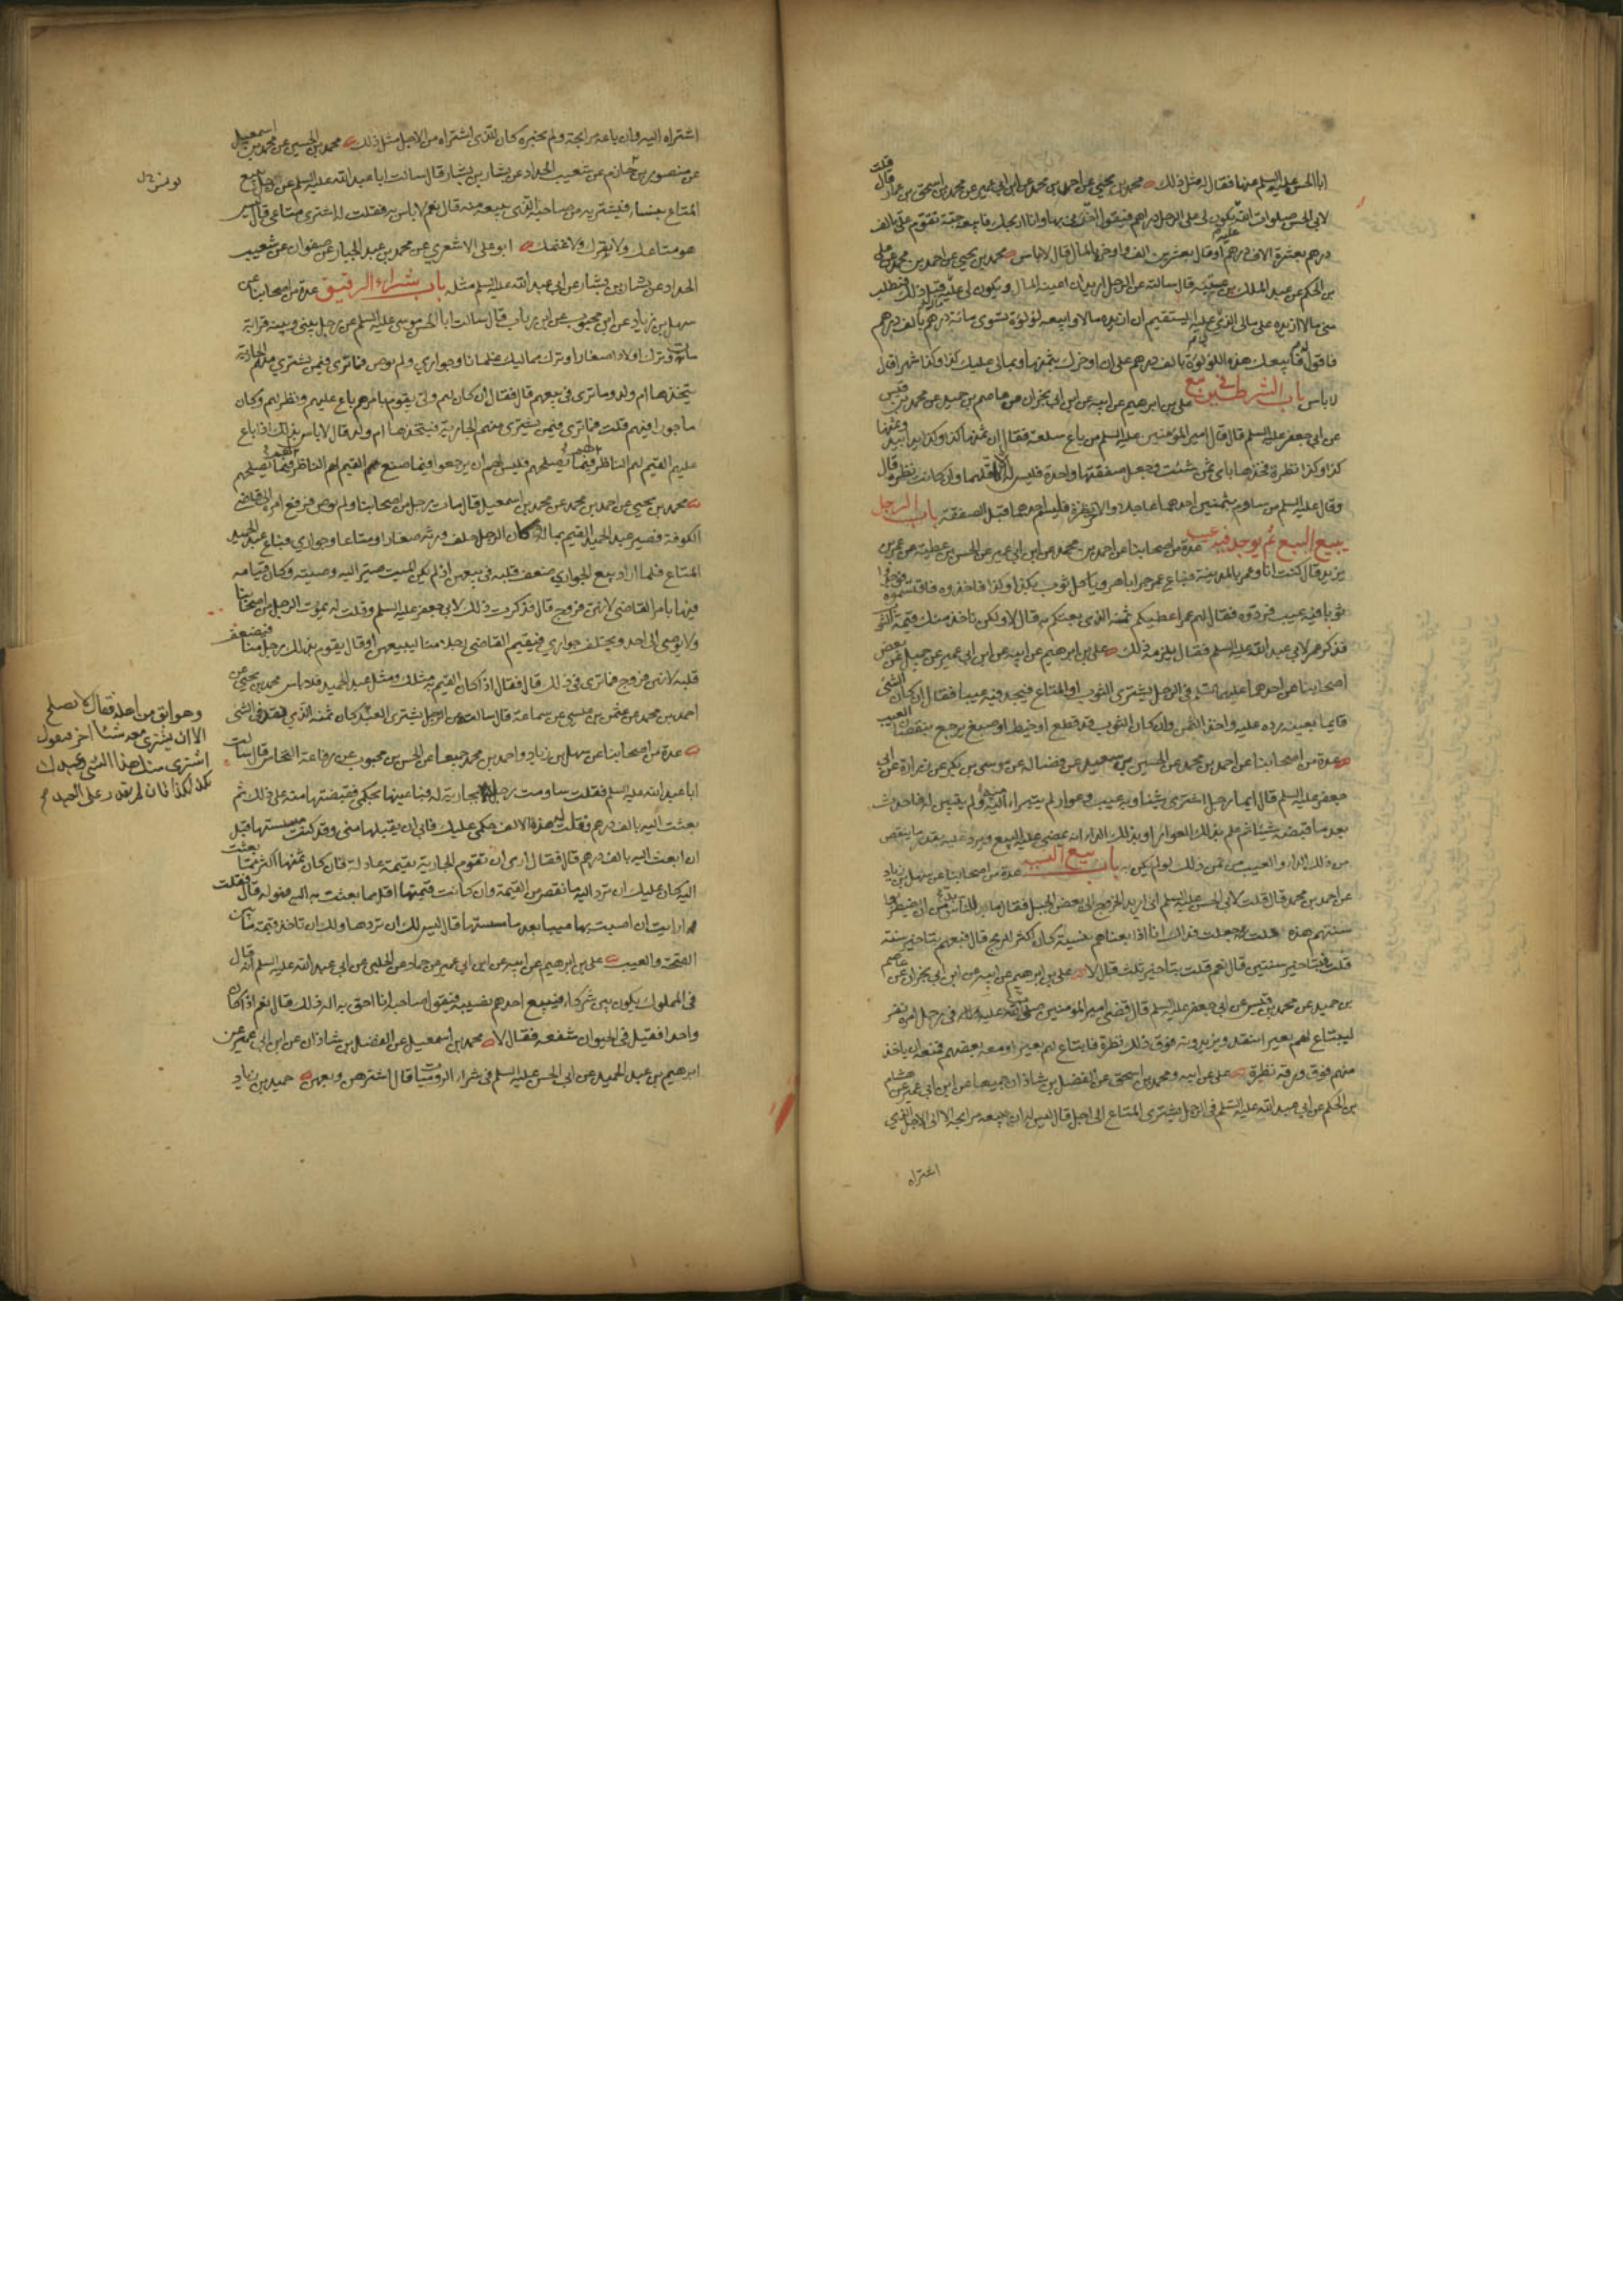 ابا الحسن عليه السلم عنها فقال له مثل ذلك محمد بن يحيى عن احمد بن محمد عن ابن ابي عمير عن محمد بن اسحق بن عمار قال قلت
لابي الحسن صلوات الله عليه يكون لي على الرجل دراهم فيقول اخرني بها وانا اربحك فابيعه جبة تقوم علي بالف
درهم بعشرة الاف درهم او قال بعشرين الفا واوخره بالمال قال لا باس محمد بن يحيى عن احمد بن محمد عن علي
بن الحكم عن عبد الملك بن عتبة قال سالته عن الرجل اريد ان اعينه المال ويكون لي عليه مال قبل ذلك فيطلب
مني مالا ازيده على مالي الذي عليه ايستقيم ان ازيده مالا وابيعه لولوة تسوى مائة درهم بالف درهم
فاقول له ابيعك هذه اللولوة بالف درهم على ان اوخرك بثمنها وبمالي عليك كذا وكذا شهرا قال
لا باس باب الشرطين في بيع علي بن ابرهيم عن ابيه عن ابن ابي نجران عن عاصم بن حميد عن محمد بن قيس
عن ابي جعفر عليه السلم قال قال امير المؤمنين عليه السلم من باع سلعة فقال ان ثمنها كذا وكذا يدا بيد وثمنها
كذا وكذا نظرة فخذها باي ثمن شئت وجعل صفقتها واحدة فليس له الا اقلهما وان كانت نظرة قال
وقال عليه السلم من ساوم بثمنين احدهما عاجلا والاخر نظرة فليسم احدهما قبل الصفقة باب الرجل
يبيع البيع ثم يوجد فيه عيب عدة من اصحابنا عن احمد بن محمد عن ابن ابي عمير عن الحسن بن عطية عن عمر بن
يزيد قال كنت انا وعمر بالمدينة فباع عمر جرابا هرويا كل ثوب بكذا وكذا فاخذوه فاقتسموه فوجدوا
ثوبا فيه عيب فردوه فقال لهم عمر اعطيكم ثمنه الذي بعتكم به قال لا ولكن ناخذ منك قيمة الثوب
فذكر عمر لابي عبد الله عليه السلم فقال يلزمه ذلك علي بن ابرهيم عن ابيه عن ابن ابي عمير عن جميل عن بعض
اصحابنا عن احدهما عليهما السلم في الرجل يشتري الثوب او المتاع فيجد فيه عيبا فقال ان كان الشئ
قايما بعينه رده عليه واخذ الثمن وان كان الثوب قد قطع او خيط او صبغ يرجع بنقصان العيب
عدة من اصحابنا عن احمد بن محمد عن الحسين بن سعيد عن فضالة عن موسى بن بكر عن زرارة عن ابي
جعفر عليه السلم قال ايما رجل اشترى شيئا وبه عيب وعوار لم يتبرا اليه ولم يبين له فاحدث
بعد ما قبضه شيئا ثم علم بذلك العوار او بذلك الداء انه يمضي عليه البيع ويرد عليه بقدر ما ينقص
من ذلك الداء والعيب من ثمن ذلك لو لم يكن به باب بيع النسية عدة من اصحابنا عن سهل بن زياد
عن احمد بن محمد قال قلت لابي الحسن عليه السلم اني اريد الخروج الى بعض الجبل فقال ما للناس بد من ان يضطربوا
سنتهم هذه فقلت له جعلت فداك انا اذا بعناهم بنسية كان اكثر للربح قال فبعهم بتاخير سنة
قلت فبتاخير سنتين قال نعم قلت بتاخير ثلث قال لا علي بن ابرهيم عن ابيه عن ابن ابي نجران عن عاصم
بن حميد عن محمد بن قيس عن ابي جعفر عليه السلم قال قضى امير المؤمنين صلوات الله عليه في رجل امره نفر
ليبتاع لهم بعيرا بنقد ويزيدونه فوق ذلك نظرة فابتاع لهم بعيرا ومعه بعضهم فمنعه ان ياخذ
منهم فوق ورقه نظرة علي عن ابيه ومحمد بن اسمعيل عن الفضل بن شاذان جميعا عن ابن ابي عمير عن هشام
بن الحكم عن ابي عبد الله عليه السلم في الرجل يشتري المتاع الى اجل قال ليس له ان يبيعه مرابحة الا الى الاجل الذي
اشتراه
اشتراه اليه وان باعه مرابحة ولم يخبره كان للذي اشتراه من الاجل مثل ذلك محمد بن الحسين عن محمد بن اسمعيل
عن منصور بن حازم عن شعيب الحداد عن بشار بن يسار قال سالت ابا عبد الله عليه السلم عن رجل يبيع
يونس
المتاع بنسا فيشتريه من صاحبه الذي يبيعه منه قال نعم لا باس به فقلت له اشتري متاعي قال ليس
هو متاعك ولا بقرك ولا غنمك ابو علي الاشعري عن محمد بن عبد الجبار عن صفوان عن شعيب
الحداد عن بشار بن يسار عن ابي عبد الله عليه السلم مثله باب شراء الرقيق عدة من اصحابنا عن
سهل بن زياد عن ابن محبوب عن ابن رياب قال سالت ابا الحسن موسى عليه السلم عن رجل بيني وبينه قرابة
مات وترك اولادا صغارا وترك مماليك غلمانا وجواري ولم يوص فما ترى فيمن يشتري منهم الجارية
يتخذها ام ولد وما ترى في بيعهم قال فقال ان كان لهم ولي يقوم بامرهم باع عليهم ونظر لهم وكان
ماجورا فيهم قلت فما ترى فيمن يشترى منهم الجارية فيتخذها ام ولد قال لا باس بذلك اذا باع
عليهم القيم لهم الناظر فيما يصلحهم فليس لهم ان يرجعوا فيما صنع القيم لهم الناظر فيما يصلحهم
محمد بن يحيى عن احمد بن محمد عن محمد بن اسمعيل قال مات رجل من اصحابنا ولم يوص فرفع امره الى قاضي
الكوفة فصير عبد الحميد القيم بماله وكان الرجل خلف ورثة صغارا ومتاعا وجواري فباع عبد الحميد
المتاع فلما اراد بيع الجواري ضعف قلبه في بيعهن اذ لم يكن الميت صير اليه وصيته وكان قيامه
فيها بامر القاضي لانهن فروج قال فذكرت ذلك لابي جعفر عليه السلم وقلت له يموت الرجل من اصحابنا
ولا يوصي الى احد ويخلف جواري فيقيم القاضي رجلا منا ليبيعهن او قال يقوم بذلك رجل منا فيضعف
قلبه لانهن فروج فما ترى في ذلك قال فقال اذا كان القيم به مثلك ومثل عبد الحميد فلا باس محمد بن يحيى عن
احمد بن محمد عن عثمن بن عيسى عن سماعة قال سالته عن الرجل يشتري العبد كان ثمنه الذي نقد في الشئ
وهو ابق من اهله فقال لا يصلح
الا ان يشتري معه شيئا اخر فيقول
اشتري منك هذا الشئ وعبدك
بكذا وكذا فان لم يقدر على العبد
عدة من اصحابنا عن سهل بن زياد واحمد بن محمد جميعا عن الحسن بن محبوب عن رفاعة النخاس قال سالت
ابا عبد الله عليه السلم فقلت ساومت رجلا بجارية له فباعنيها بحكمي فقبضتها منه على ذلك ثم
بعثت اليه بالف درهم وقلت له هذه الالف حكمي عليك فابى ان يقبلها مني وقد كنت مسستها قبل
ان ابعث اليه بالف درهم قال فقال ارى ان تقوم الجارية بقيمة عادلة فان كان ثمنها اكثر مما بعثت
اليه كان عليك ان ترد اليه ما نقص من القيمة وان كانت قيمتها اقل مما بعثت به اليه فهو له قال فقلت
ارايت ان اصبت بها عيبا بعد ما مسستها قال ليس لك ان تردها ولك ان تاخذ قيمة ما بين
الصحة والعيب علي بن ابرهيم عن ابيه عن ابن ابي عمير عن حماد عن الحلبي عن ابي عبد الله عليه السلم انه قال
في المملوك يكون بين شركاء فيبيع احدهم نصيبه فيقول صاحبه انا احق به اله ذلك قال نعم اذا كان
واحدا فقيل في الحيوان شفعة فقال لا محمد بن اسمعيل عن الفضل بن شاذان عن ابن ابي عمير عن
ابرهيم بن عبد الحميد عن ابي الحسن عليه السلم في شراء الروميات قال اشترهن وبعهن حميد بن زياد